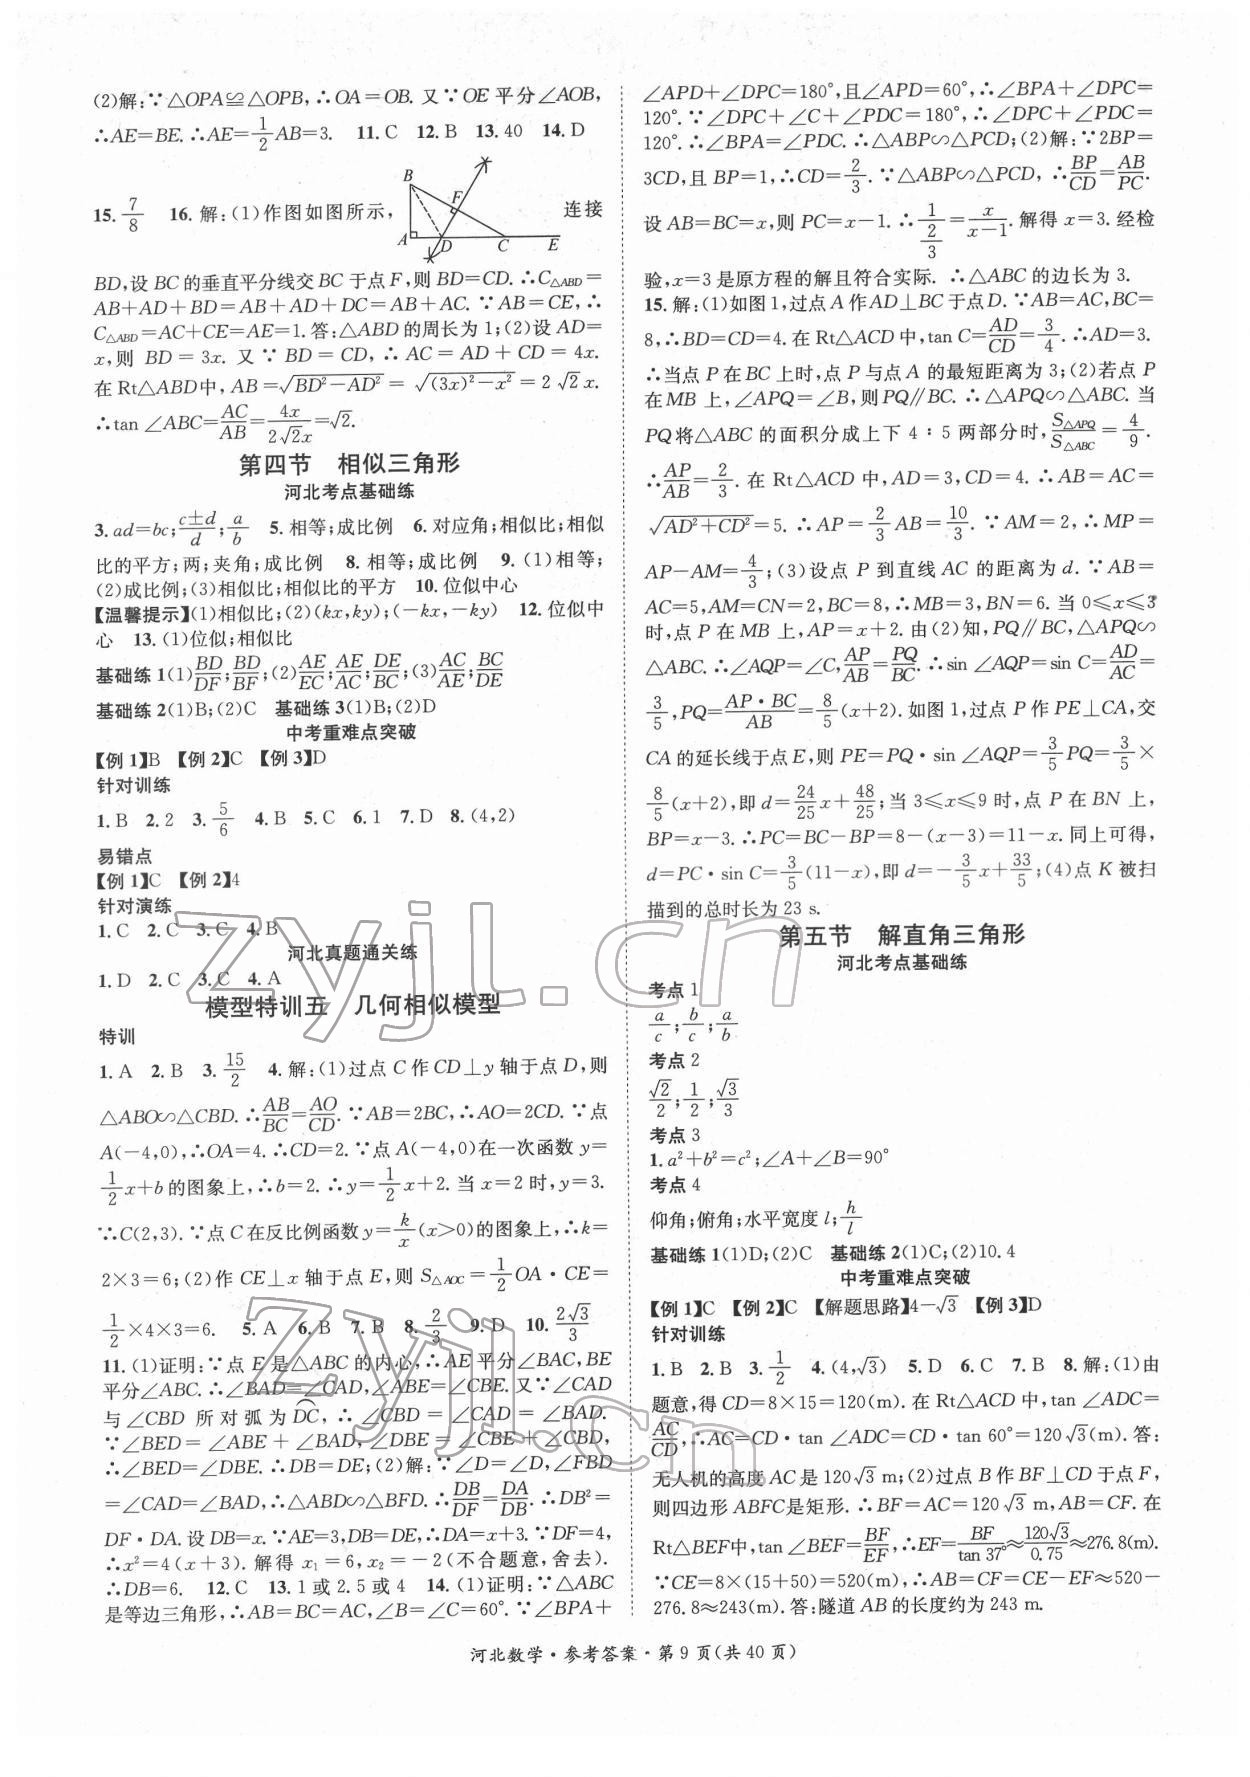 (2)解:∵△OPA≌△OPB,∴OA=OB. 又∵OE平分∠AOB,
∴AE=BE. ∴AE=1/2AB=3.  11. C  12. B  13. 40  14. D
15. 7/8  16. 解:(1)作图如图所示,
B
F
A D C E
连接
BD,设BC的垂直平分线交BC于点F,则BD=CD. ∴C△ABD=
AB+AD+BD=AB+AD+DC=AB+AC. ∵AB=CE,∴
C△ABD=AC+CE=AE=1. 答:△ABD的周长为1;(2)设AD=
x,则BD=3x. 又∵BD=CD,∴AC=AD+CD=4x.
在Rt△ABD中,AB=√(BD²-AD²)=√((3x)²-x²)=2√2x.
∴tan∠ABC=AC/AB=4x/(2√2x)=√2.
第四节 相似三角形
河北考点基础练
3. ad=bc;(c±d)/d;a/b  5. 相等;成比例  6. 对应角;相似比;相似
比的平方;两;夹角;成比例  8. 相等;成比例  9. (1)相等;
(2)成比例;(3)相似比;相似比的平方  10. 位似中心
【温馨提示】(1)相似比;(2)(kx,ky);(-kx,-ky)  12. 位似中
心  13. (1)位似;相似比
基础练1(1)BD/DF;BD/BF;(2)AE/EC;AE/AC;DE/BC;(3)AC/AE;BC/DE
基础练2(1)B;(2)C  基础练3(1)B;(2)D
中考重难点突破
【例1】B  【例2】C  【例3】D
针对训练
1. B  2. 2  3. 5/6  4. B  5. C  6. 1  7. D  8. (4,2)
易错点
【例1】C  【例2】4
针对演练
1. C  2. C  3. C  4. B
河北真题通关练
1. D  2. C  3. C  4. A
模型特训五 几何相似模型
特训
1. A  2. B  3. 15/2  4. 解:(1)过点C作CD⊥y轴于点D,则
△ABO∽△CBD. ∴AB/BC=AO/CD. ∵AB=2BC,∴AO=2CD. ∵点
A(-4,0),∴OA=4. ∴CD=2. ∵点A(-4,0)在一次函数y=
1/2x+b的图象上,∴b=2. ∴y=1/2x+2. 当x=2时,y=3.
∵C(2,3). ∵点C在反比例函数y=k/x(x>0)的图象上,∴k=
2×3=6;(2)作CE⊥x轴于点E,则S△AOC=1/2OA·CE=
1/2×4×3=6.  5. A  6. B  7. B  8. 2/3  9. D  10. 2√3/3
11. (1)证明:∵点E是△ABC的内心,∴AE平分∠BAC,BE
平分∠ABC. ∴∠BAD=∠CAD,∠ABE=∠CBE. 又∵∠CAD
与∠CBD所对弧为DC,∴∠CBD=∠CAD=∠BAD.
∵∠BED=∠ABE+∠BAD,∠DBE=∠CBE+∠CBD,
∴∠BED=∠DBE. ∴DB=DE;(2)解:∵∠D=∠D,∠FBD
=∠CAD=∠BAD,∴△ABD∽△BFD. ∴DB/DF=DA/DB. ∴DB²=
DF·DA. 设DB=x. ∵AE=3,DB=DE,∴DA=x+3. ∵DF=4,
∴x²=4(x+3). 解得x₁=6,x₂=-2(不合题意,舍去).
∴DB=6.  12. C  13. 1或2.5或4  14. (1)证明:∵△ABC
是等边三角形,∴AB=BC=AC,∠B=∠C=60°. ∵∠BPA+
∠APD+∠DPC=180°,且∠APD=60°,∴∠BPA+∠DPC=
120°. ∵∠DPC+∠C+∠PDC=180°,∴∠DPC+∠PDC=
120°. ∴∠BPA=∠PDC. ∴△ABP∽△PCD;(2)解:∵2BP=
3CD,且BP=1,∴CD=2/3. ∵△ABP∽△PCD,∴BP/CD=AB/PC.
设AB=BC=x,则PC=x-1. ∴1/(2/3)=x/(x-1). 解得x=3. 经检
验,x=3是原方程的解且符合实际. ∴△ABC的边长为3.
15. 解:(1)如图1,过点A作AD⊥BC于点D. ∵AB=AC,BC=
8,∴BD=CD=4. 在Rt△ACD中,tan C=AD/CD=3/4. ∴AD=3.
∴当点P在BC上时,点P与点A的最短距离为3;(2)若点P
在MB上,∠APQ=∠B,则PQ∥BC. ∴△APQ∽△ABC. 当
PQ将△ABC的面积分成上下4∶5两部分时,S△APQ/S△ABC=4/9.
∴AP/AB=2/3. 在Rt△ACD中,AD=3,CD=4. ∴AB=AC=
√(AD²+CD²)=5. ∴AP=2/3AB=10/3. ∵AM=2,∴MP=
AP-AM=4/3;(3)设点P到直线AC的距离为d. ∵AB=
AC=5,AM=CN=2,BC=8,∴MB=3,BN=6. 当0≤x≤3
时,点P在MB上,AP=x+2. 由(2)知,PQ∥BC,△APQ∽
△ABC. ∴∠AQP=∠C,AP/AB=PQ/BC. ∴sin∠AQP=sin C=AD/AC=
3/5,PQ=AP·BC/AB=8/5(x+2). 如图1,过点P作PE⊥CA,交
CA的延长线于点E,则PE=PQ·sin∠AQP=3/5PQ=3/5×
8/5(x+2),即d=24/25x+48/25;当3≤x≤9时,点P在BN上,
BP=x-3. ∴PC=BC-BP=8-(x-3)=11-x. 同上可得,
d=PC·sin C=3/5(11-x),即d=-3/5x+33/5;(4)点K被扫
描到的总时长为23 s.
第五节 解直角三角形
河北考点基础练
考点1
a/c;b/c;a/b
考点2
√2/2;1/2;√3/3
考点3
1. a²+b²=c²;∠A+∠B=90°
考点4
仰角;俯角;水平宽度l;h/l
基础练1(1)D;(2)C  基础练2(1)C;(2)10.4
中考重难点突破
【例1】C  【例2】C  【解题思路】4-√3  【例3】D
针对训练
1. B  2. B  3. 1/2  4. (4,√3)  5. D  6. C  7. B  8. 解:(1)由
题意,得CD=8×15=120(m). 在Rt△ACD中,tan∠ADC=
AC/CD,∴AC=CD·tan∠ADC=CD·tan 60°=120√3(m). 答:
无人机的高度AC是120√3 m;(2)过点B作BF⊥CD于点F,
则四边形ABFC是矩形. ∴BF=AC=120√3 m,AB=CF. 在
Rt△BEF中,tan∠BEF=BF/EF,∴EF=BF/tan 37°≈120√3/0.75≈276.8(m).
∵CE=8×(15+50)=520(m),∴AB=CF=CE-EF≈520-
276.8≈243(m). 答:隧道AB的长度约为243 m.
河北数学·参考答案·第9页(共40页)
zyjl.cn
zyjl.cn